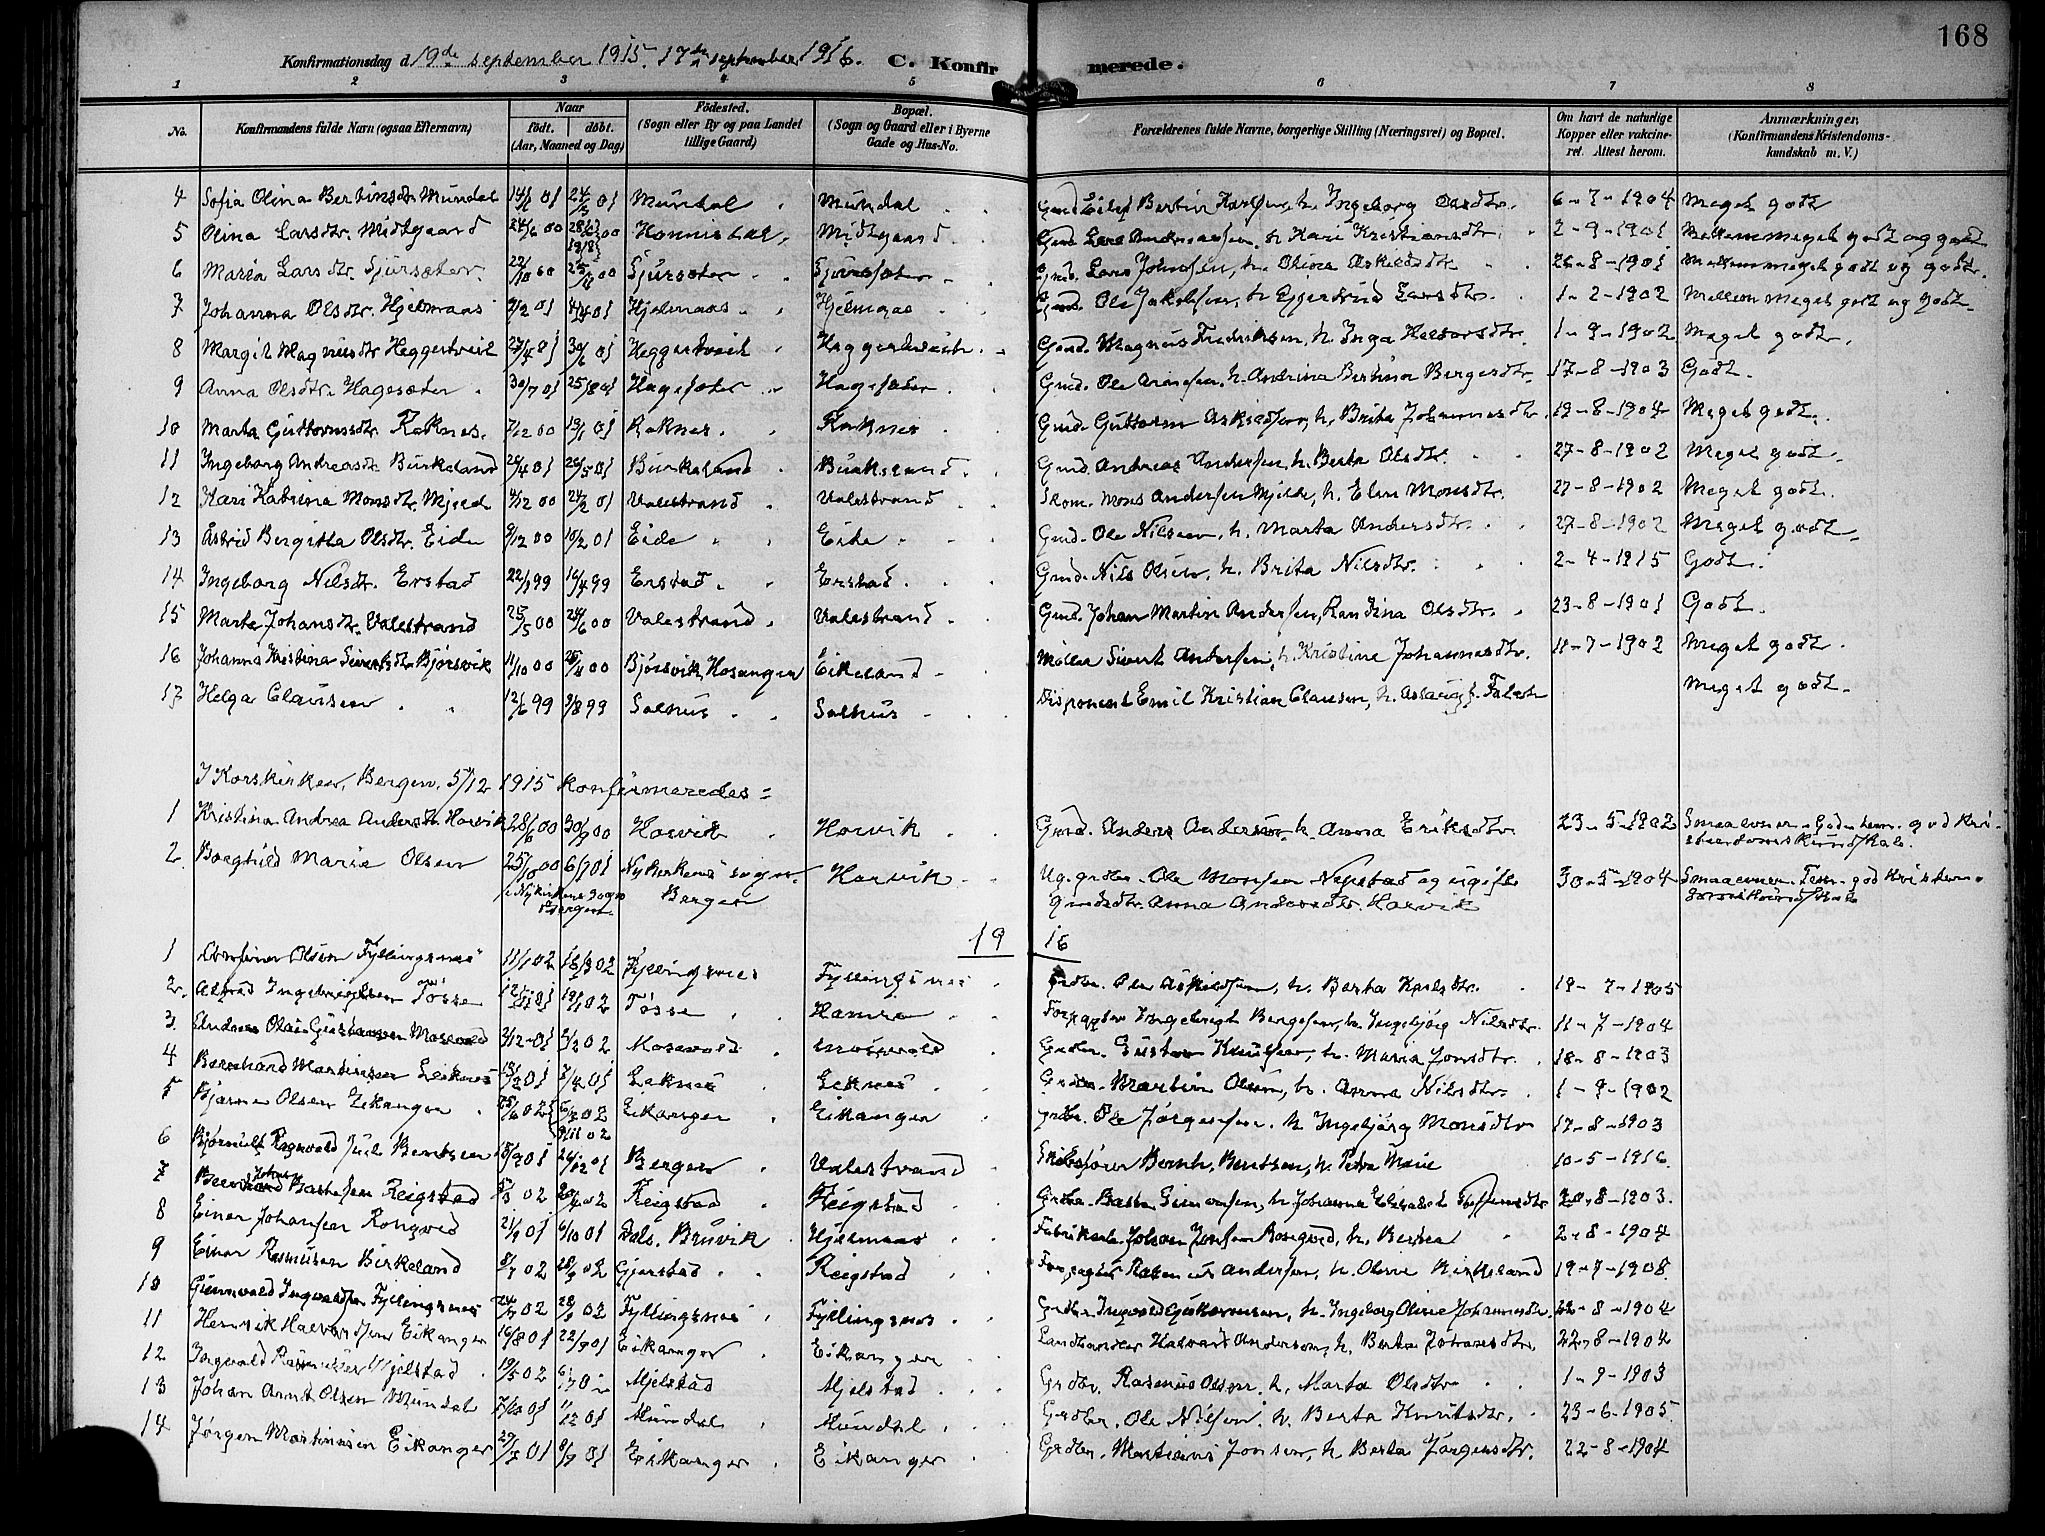 168
Konfirmationsdag d. 19de september 1915. 17de september 1916. C. Konfirmerede.
1 2 3 4 5 6 7 8
No. Konfirmandens fulde Navn (ogsaa Efternavn) Naar født. døbt. (Aar, Maaned og Dag) Fødested. (Sogn eller By og paa Landet tillige Gaard) Bopæl. (Sogn og Gaard eller i Byerne Gade og Hus-No. Forældrenes fulde Navne, borgerlige Stilling (Næringsvei) og Bopæl. Om havt de naturlige Kopper eller vakcineret. Attest herom. Anmærkninger, (Konfirmandens Kristendomskundskab m. V.)
4 Sofia Olina Bertinsdtr. Mundal 01 01 Mundal Mundal Gmd. Bertin h. Ingeborg Olsdtr. 6-7-1904 Meget godt
5 Olina Larsdtr. Midtgaard 24/6 00 Midtgaard Gmd. Lars h. Kari Kristiansdtr. 2-9-1901 Mellem meget godt og godt
6 Maria Larsdtr. Sjursæter 22/10 00 25/11 00 Sjursæter Sjursæter Gmd. Lars Johnsen, h. Olina Askeldsdtr. 26-8-1901 Mellem meget godt og godt.
7 Johanna Olsdtr. Hjelmaas 01 01 Hjelmaas Hjelmaas Gmd. Ole Jakobsen, h. Gjertrud Larsdtr. 1-2-1902 Mellem meget godt og godt.
8 Margit Magnusdtr. Heggertveit 27/4 01 30/6 01 Heggertveit Heggertveit Gmd. Magnus Fredriksen, h. Inga Halvorsdtr. 1-9-1902 Meget godt.
9 Anna Olsdtr. Hagesæter 30/7 01 25/8 01 Hagesæter Hagesæter Gmd. Ole Arnesen, h. Andrina Bertina Bergesdtr. 17-8-1903 Godt.
10 Marta Guttormsdtr. Raknes. 7/12 00 13/1 01 Raknes Raknes Gmd. Guttorm h. Brita Johannesdtr. 19-8-1904 Meget godt.
11 Ingeborg Andreasdtr. Birkeland 26/4 01 26/5 01 Birkeland Birkeland Gmd. Andreas Andersen, h. Berta Olsdtr. 27-8-1902 Meget godt.
12 Kari Katrina Monsdtr. 4/12 00 24/2 01 Valestrand Valestrand Skom. Mons Andersen Mjelde, h. Elen Monsdtr. 27-8-1902 Meget godt.
13 Astrid Bergitta Olsdtr. Eide 9/12 00 10/2 01 Eide Eide Gmd. Ole Nilssen, h. Marta Andersdtr. 27-8-1902 Meget godt.
14 Ingeborg Nilsdtr. Erstad 99 16/4 99 Erstad Erstad. Gmd. Nils Olsen, h. Brita Nilsdtr. 2-4-1915 Godt.
15 Marta Johansdtr. Valestrand 25/5 00 24/6 00 Valestrand Valestrand Gmd. Johan Martin Andersen, Randina Olsdtr. 23-8-1901 Godt.
16 Johanna Kristina Sivertsdtr. Bjørsvik 11/10 00 00 Bjørsvik, Hosanger Eikeland Møller Sivert Andersen, h. Kristine Johannesdtr. 11-7-1902 Meget godt.
17 Helga Clausen 12/6 99 9/8 99 Salhus Salhus Disponent Emil Kristian Clausen, h. Aslaug f. Falch Meget godt.
I Korskirken, Bergen, 5/12 1915 konfirmeredes:
1 Kristina Andrea Andersdtr. Horvik 28/6 00 30/9 00 Horvik Horvik Gmd. Anders Andersen, h. Anna Eriksdtr. 23-5-1902 Smaa evner. god Kristendomskundskab.
2. Borghild Marie Olsen 25/10 00 6/1 01 Nykirkens sogn. Bergen Horvik Ug. grdbr. Ole Monsen Nepstad og ugifte 30-5-1904 Smaa evner. god Kristendomskundskab
i Nykirkens Sogn Bergen. gmdsdtr. Anna Andersdtr. Horvik
19 16
1 Olsen Fyllingsnes 11/1 02 16/3 02 Fyllingsnes Fyllingsnes Grdbr. Ole Askildsen, h. Berta Karlsdtr. 19-7-1905
2. Alfred Ingebrigtsen Tøsse 01 19/1 02 Tøsse Hamre Forpagter Ingebrigt Bergesen, h. Ingebjørg Nilsdtr. 11-7-1904
3. Olai Gustavsen Mosevold 2/12-01 2/2 02 Mosevold Mosevold Grdbr. Gustav Knutsen, h. Maria Jonsdtr. 18-8-1903
4 Bernhard Martinsen Leknes 13/2 01 7/4 01 Leknes Leknes Grdbr. Martin Olsen, h. Anna Nilsdtr. 1-9-1902
5 Bjarne Olsen Eikanger 02 02 Eikanger Eikanger Grdbr. Ole Jørgensen. h. Ingebjørg Monsdtr 17-8-1903
6 Ragnvald Juel Bentsen 01 01 Bergen Valestrand Skibsfører Bernh. Bentsen, h. Petra Marie 10-5-1916.
7 Johan Reigstad 02 02 Reigstad Reigstad Grdbr. h. Johanna Elisabet 20-8-1903.
8 Einar Johansen Rongved 21/9 01 6/10 01 Bruvik Hjelmaas Fabrikarb. Johan h. Berta 2-8-1904
9 Einar Rasmussen Birkeland 8/7 02 02 Gjerstad Reigstad Forpagter Rasmus Andersen, h. Oline Birkeland 19-7-1908.
10 Gunnvald Ingvaldsen Fyllingsnes 24/7 02 28/9 02 Fyllingsnes Fyllingsnes Grdbr. Ingvald Guttormsen, h. Ingeborg Oline Johannesdtr. 22-8-1904
11 Henrik Halvordsen Eikanger 16/8 01 22/9 01 Eikanger Eikanger Landhandler Halvard Andersen, h. Berta Johansdtr. 22-8-1904
12 Ingvald Rasmussen Mjelstad 19/5 02 Mjelstad Mjelstad Grdbr. Rasmus Olsen, h. Marta Olsdtr. 1-9-1903
13 Johan Arnt Olsen Mundal 7/10 01 01 Mundal Mundal Grdbr. Ole Nilsen h. Berta Knutsdtr. 23-6-1905.
14 Jørgen Martinusen Eikanger 29/7 01 8/9 01 Eikanger Eikanger Grdbr. Martinus Jonsen, h. Berta Jørgensdtr. 22-8-1904